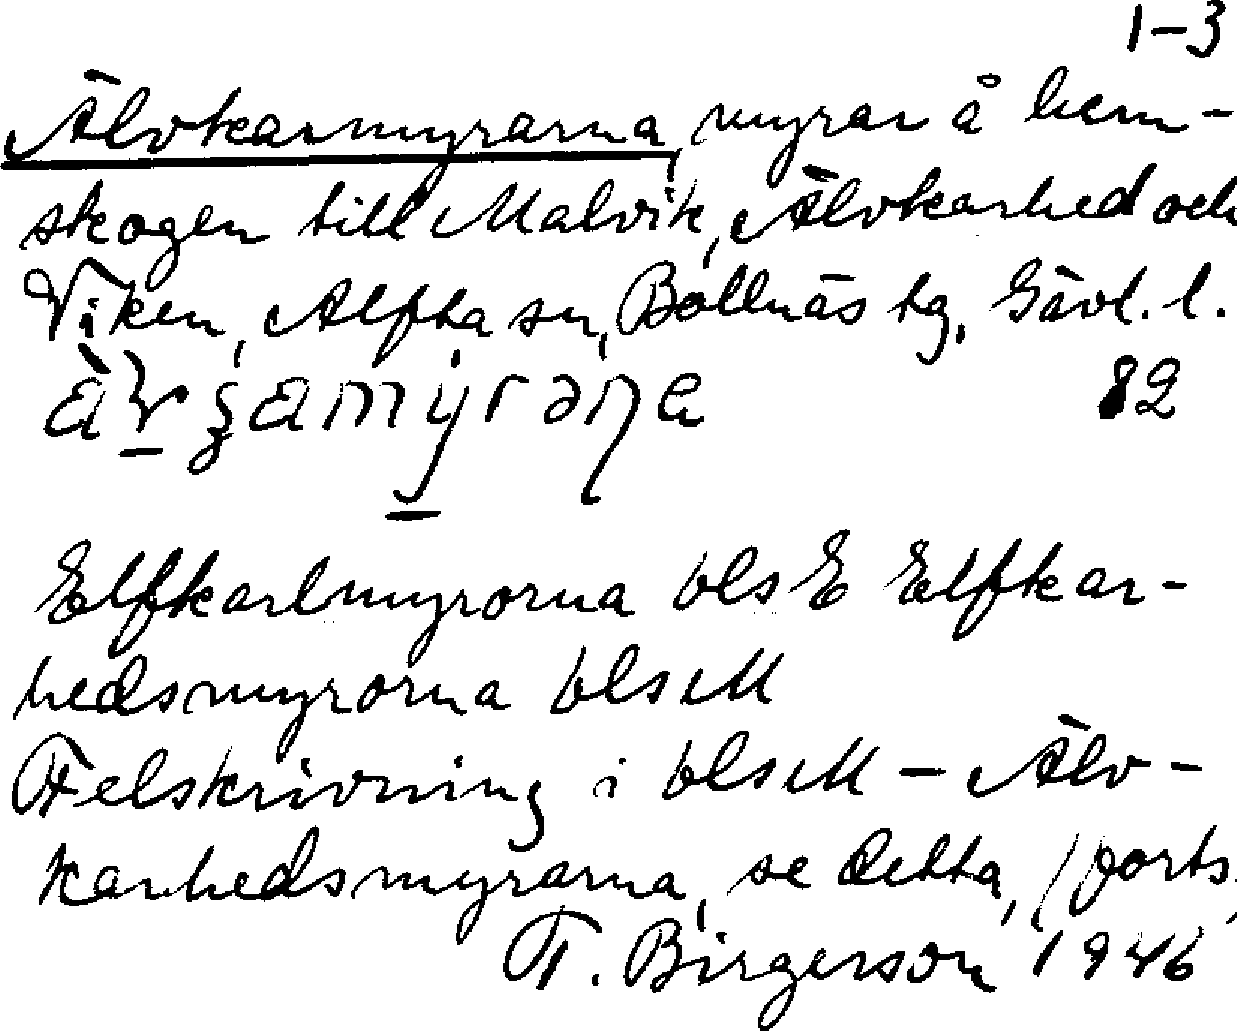 1-3
Älvkarmyrarna, myrar å hem-
skogen till Malvik, Älvkarhed och
Viken, Alfta sn, Bollnäs tg, Gävl. l.
82
Elfkarlmyrorna blsE Elfkar-
hedsmyrorna blsM
Felskrivning i blsM - Älv-
karhedsmyrarna, se detta, (forts.
T. Birgerson 1946